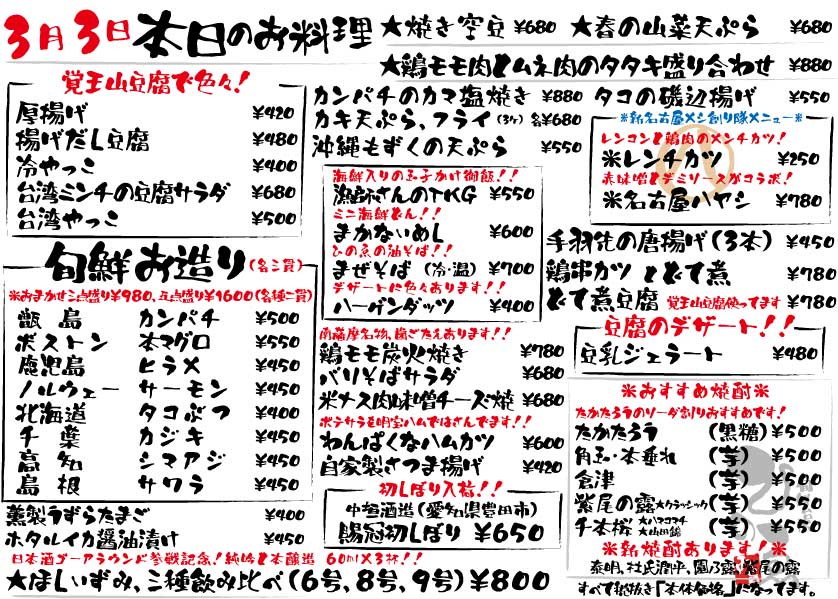 3月3日 本日のお料理
★焼き空豆 ¥680 ★春の山菜天ぷら ¥680
★鶏モモ肉とムネ肉のタタキ盛り合わせ ¥880
覚王山豆腐で色々!
厚揚げ ¥420
揚げだし豆腐 ¥480
冷やっこ ¥400
台湾ミンチの豆腐サラダ ¥680
台湾やっこ ¥500
カンパチのカマ塩焼き ¥880 タコの磯辺揚げ ¥550
カキ天ぷら、フライ(3ケ) 各¥680
沖縄もずくの天ぷら ¥550
※新名古屋メシ創り隊メニュー※
レンコンと鶏肉のメンチカツ!
※レンチカツ ¥250
赤味噌とデミソースがコラボ!
※名古屋ハヤシ ¥780
海鮮入りの玉子かけ御飯!!
漁師さんのTKG ¥550
ミニ海鮮どん!!
まかないめし ¥600
ひの魚の油そば!!
まぜそば (冷・温) ¥700
デザートに色々あります!!
ハーゲンダッツ ¥400
手羽先の唐揚げ(3本) ¥450
鶏串カツ とどて煮 ¥780
どて煮豆腐 覚王山豆腐使ってます ¥780
豆腐のデザート!!
豆乳ジェラート ¥480
旬鮮お造り(各二貫)
※おまかせ三点盛り¥980、五点盛り¥1600(各種二貫)
甑島 カンパチ ¥500
ボストン 本マグロ ¥550
鹿児島 ヒラメ ¥450
ノルウェー サーモン ¥450
北海道 タコぶつ ¥400
千葉 カジキ ¥450
高知 シマアジ ¥450
島根 サワラ ¥450
燻製うずらたまご ¥400
ホタルイカ醤油漬け ¥450
南薩摩名物、歯ごたえあります!!
鶏モモ炭火焼き ¥780
バリそばサラダ ¥680
米ナス肉味噌チーズ焼 ¥680
ポテサラを明宝ハムではさんでます!!
わんぱくなハムカツ ¥600
自家製さつま揚げ ¥420
初しぼり入荷!!
中垣酒造(愛知県豊田市)
賜冠初しぼり ¥650
※おすすめ焼酎※
たかたろうのソーダ割りおすすめです!
たかたろう (黒糖)¥500
角玉・本垂れ (芋)¥500
倉津 (芋)¥500
紫尾の露★クラッシック(芋)¥550
千本桜 ★ハマコマチ ★山田錦 (芋)¥550
※新焼酎あります!※
泰明、杜氏潤平、園乃露、紫尾の露
日本酒ゴーアラウンド参戦記念!純吟と本醸造 60ml×3杯!!
★ほしいずみ、三種飲み比べ(6号、8号、9号)¥800
すべて税抜き「本体価格」になってます。